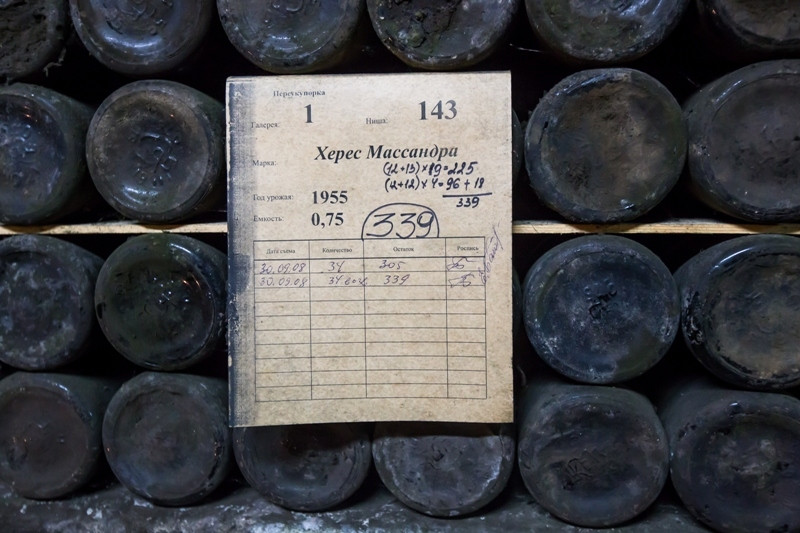 Перекупорка
Галерея: 1 Ниша: 143
Марка: Херес Массандра
(12+13) × 9 = 225
(12+12) × 4 = 96 + 18
339
Год урожая: 1955
Ёмкость: 0,75
339
Дата съема Количество Остаток Роспись
30.09.08 34 305
30.09.08 34 339